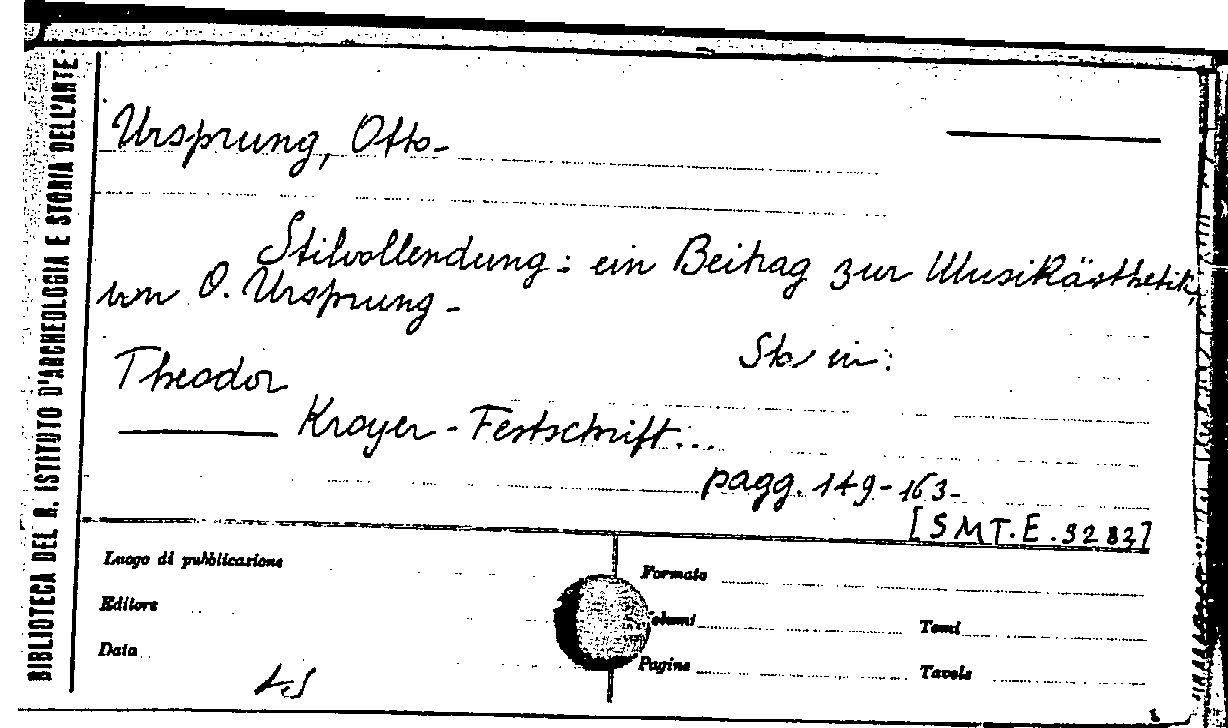 BIBLIOTECA DEL R. ISTITUTO D'ARCHEOLOGIA E STORIA DELL'ARTE
Ursprung, Otto-
Stilvollendung: ein Beitrag zur Musikästhetik,
von O. Ursprung.-
Sta in:
Theodor
Kroyer-Festschrift...
pagg. 149-163-
[SMT.E.3283]
Luogo di pubblicazione
Formato
Editore
Volumi
Tomi
Data
Pagine
Tavole